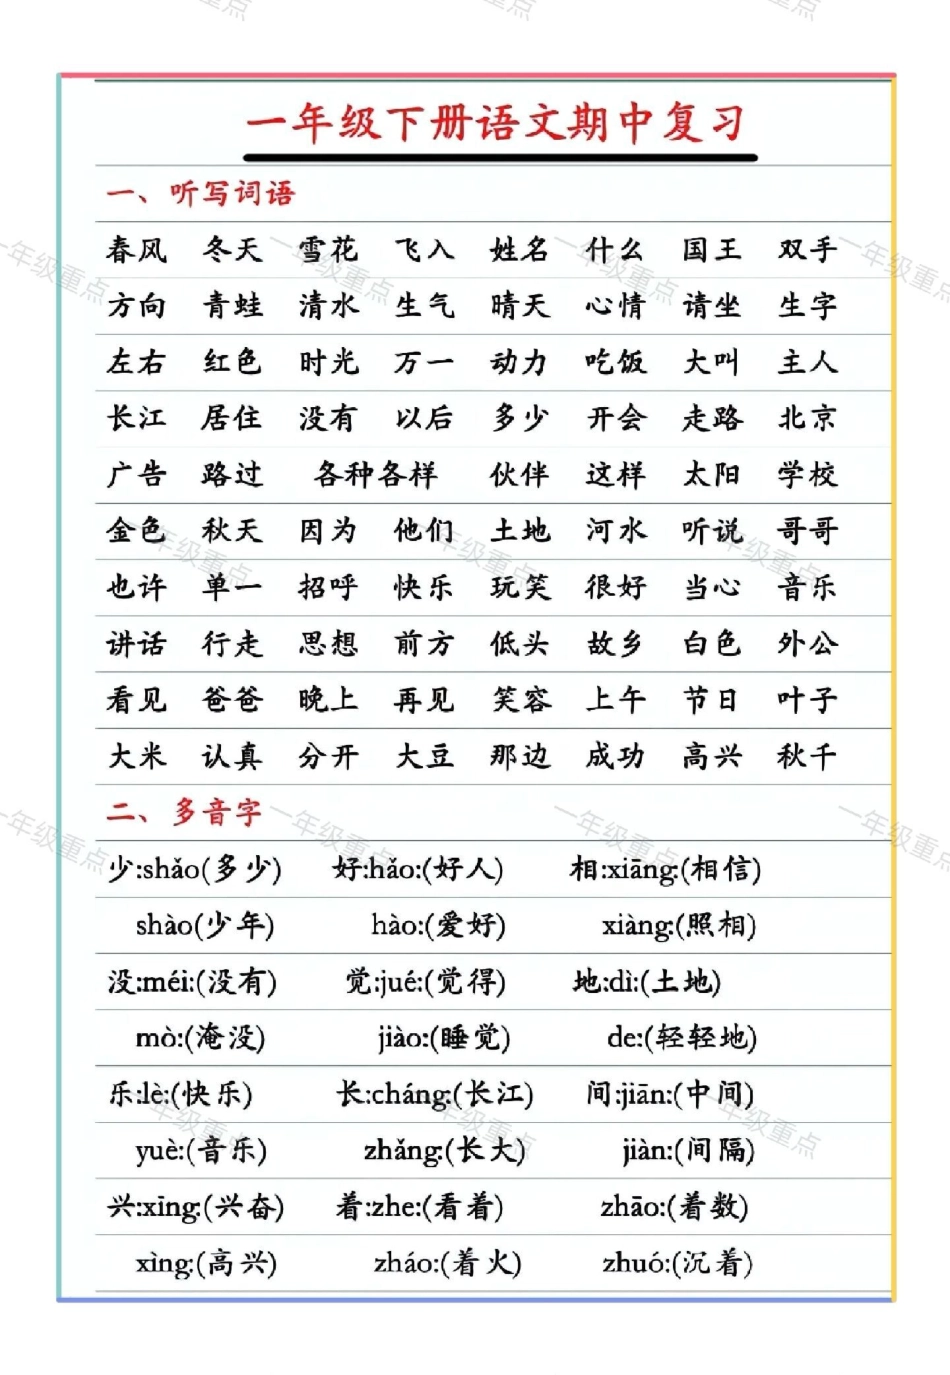 一年级下册语文期中复习
一、听写词语
春风 冬天 雪花 飞入 姓名 什么 国王 双手
方向 青蛙 清水 生气 晴天 心情 请坐 生字
左右 红色 时光 万一 动力 吃饭 大叫 主人
长江 居住 没有 以后 多少 开会 走路 北京
广告 路过 各种各样 伙伴 这样 太阳 学校
金色 秋天 因为 他们 土地 河水 听说 哥哥
也许 单一 招呼 快乐 玩笑 很好 当心 音乐
讲话 行走 思想 前方 低头 故乡 白色 外公
看见 爸爸 晚上 再见 笑容 上午 节日 叶子
大米 认真 分开 大豆 那边 成功 高兴 秋千
二、多音字
少:shǎo(多少) 好:hǎo:(好人) 相:xiāng:(相信)
shào(少年) hào:(爱好) xiàng:(照相)
没:méi:(没有) 觉:jué:(觉得) 地:dì:(土地)
mò:(淹没) jiào:(睡觉) de:(轻轻地)
乐:lè:(快乐) 长:cháng:(长江) 间:jiān:(中间)
yuè:(音乐) zhǎng:(长大) jiàn:(间隔)
兴:xīng:(兴奋) 着:zhe:(看着) zhāo:(着数)
xìng:(高兴) zháo:(着火) zhuó:(沉着)
一年级重点